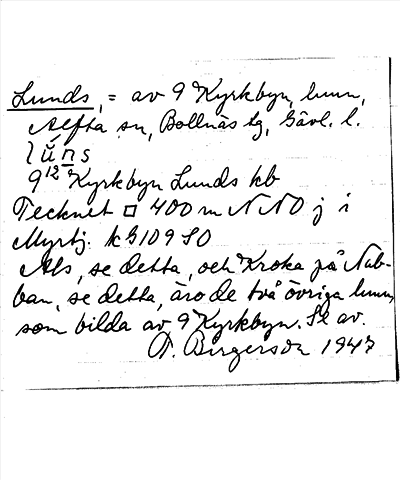 Lunds, = av 9 Kyrkbyn, hmn,
Alfta sn, Bollnäs tg, Gävl. l.
9¹² Kyrkbyn Lunds kb
Tecknet □ 400 m NNO j i
Myrtj. k G109 SO
Als, se detta, och Kroka på Nab-
ban, se detta, äro de två övriga hmn,
som bilda av 9 Kyrkbyn. Se av.
O. Birgerson 1947